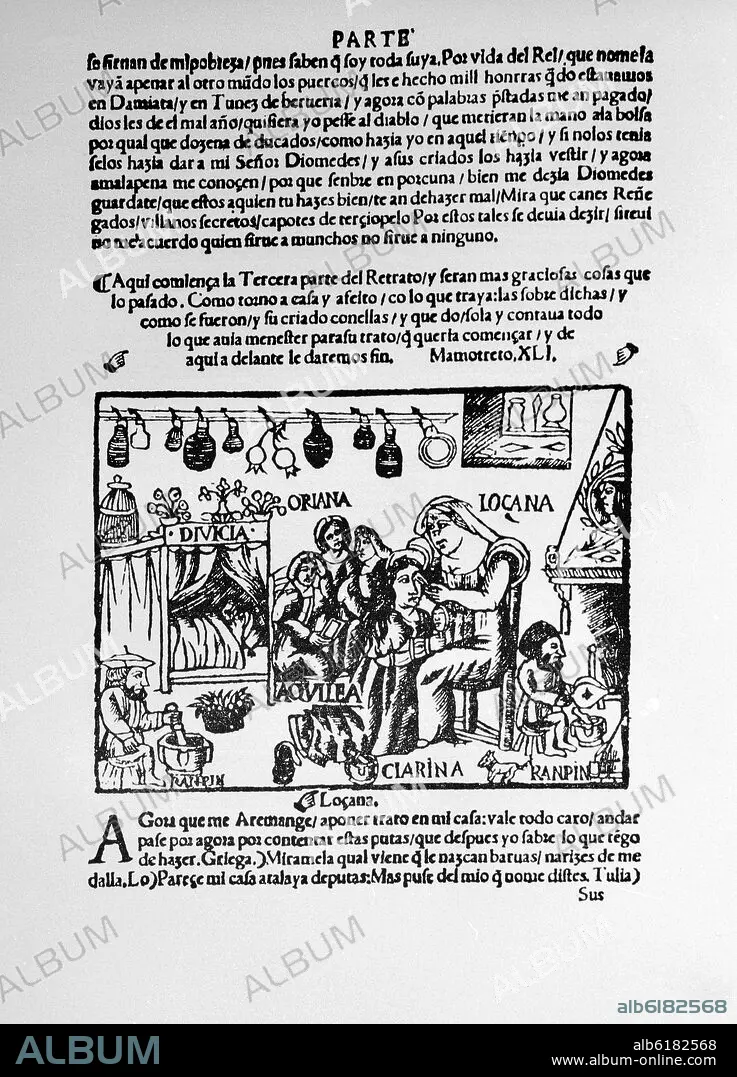 PARTE
se sirnan de mi pobreza/ pues saben q̃ soy toda suya, Por vida del Rei/ que no me la
vayã apenar al otro mũdo los puercos/ q̃ les e hecho mill honrras q̃do estauamos
en Damiata/ y en Tunez de berueria/ y agora cõ palabras p̃stadas me an pagado/
dios les de el mal año/ quisiera yo pesse al diablo/ que metieran la mano ala bolsa
por qual que dozena de ducados/ como hazia yo en aquel tiẽpo/ y si nolos tenia
selos hazia dar a mi Señor Diomedes/ y a sus criados los hazia vestir/ y agora
amalapena me conoçen/ por que senbre en porcuna/ bien me dezia Diomedes
guardate/ que estos aquien tu hazes bien/ te an dehazer mal/ Mira que canes Reñe
gados/ villanos secretos/ capotes de terçiopelo Por estos tales se deuia dezir/ si te ui
no me acuerdo quien sirue a munchos no sirue a ninguno.
Aqui comiença la Tercera parte del Retrato/ y seran mas graciosas cosas que
lo pasado. Como torno a casa y afeito/ co lo que traya: las sobre dichas/ y
como se fueron/ y su criado conellas/ y que do/ sola y contaua todo
lo que auia menester para su trato/ q̃ queria començar/ y de
aqui a delante le daremos fin. Mamotreto, XLI.
ORIANA
LOÇANA
DIVICIA
AQVILEA
RANPIN
CLARINA
RANPIN
Loçana.
AGora que me Aremange/ aponer trato en mi casa: vale todo caro/ andar
pase por agora por contentar estas putas/ que despues yo sabre lo que tẽgo
de hazer. Griega.) Miramela qual viene q̃ le nazcan baruas/ narizes de me
dalla. Lo) Pareçe mi casa atalaya de putas: Mas puse del mio q̃ no me distes. Tulia)
Sus
alb6182568
ALBUM
alb6182568
www.album-online.com